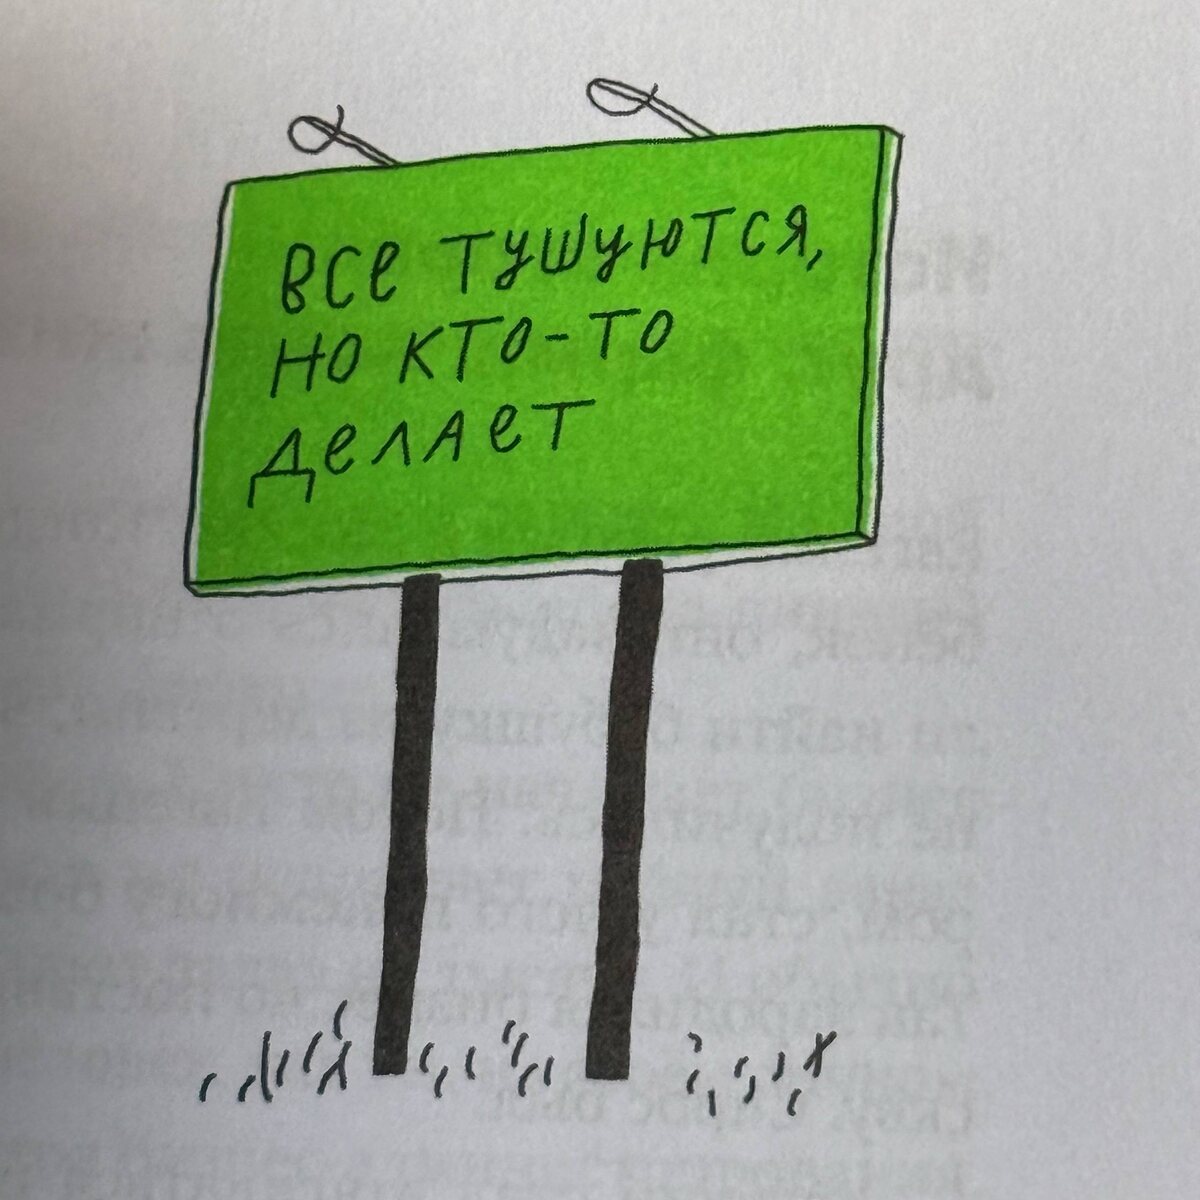 Все тушуются,
но кто-то
делает